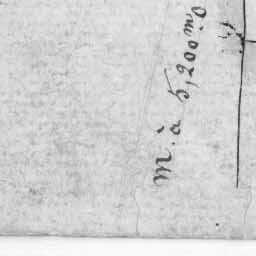 m. à 5,200 m,0